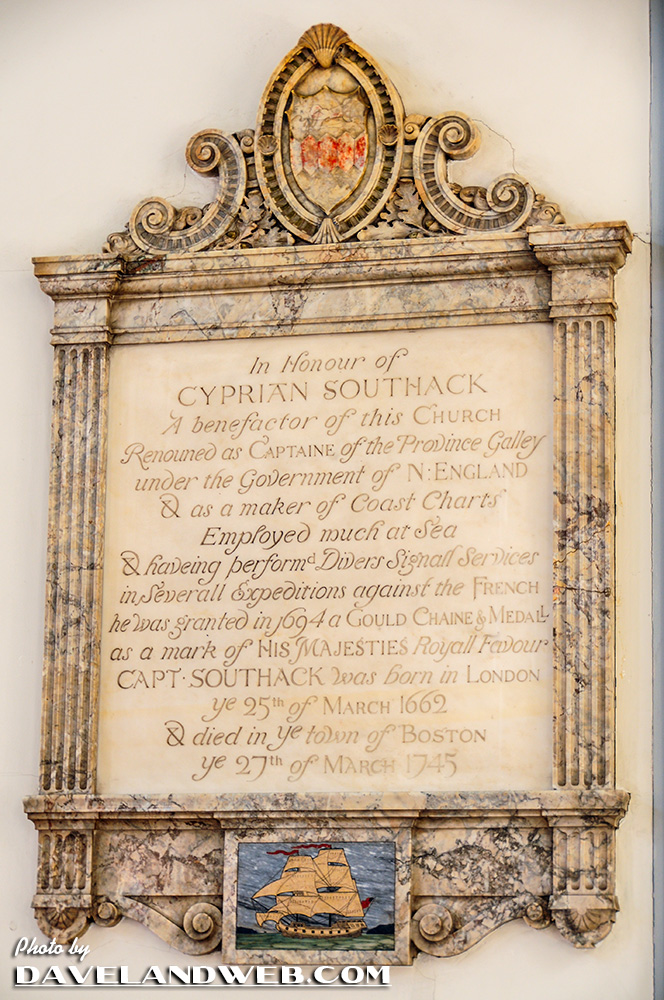 In Honour of
CYPRIAN SOUTHACK
A benefactor of this CHURCH
Renouned as CAPTAINE of the Province Galley
under the Government of N: ENGLAND
& as a maker of Coast Charts
Employed much at Sea
& haveing performd Divers Signall Services
in Severall Expeditions against the FRENCH
he was granted in 1694 a GOULD CHAINE & MEDALL
as a mark of HIS MAJESTIES Royall Favour
CAPT. SOUTHACK was born in LONDON
ye 25th of MARCH 1662
& died in ye town of BOSTON
ye 27th of MARCH 1745
Photo by
DAVELANDWEB.COM